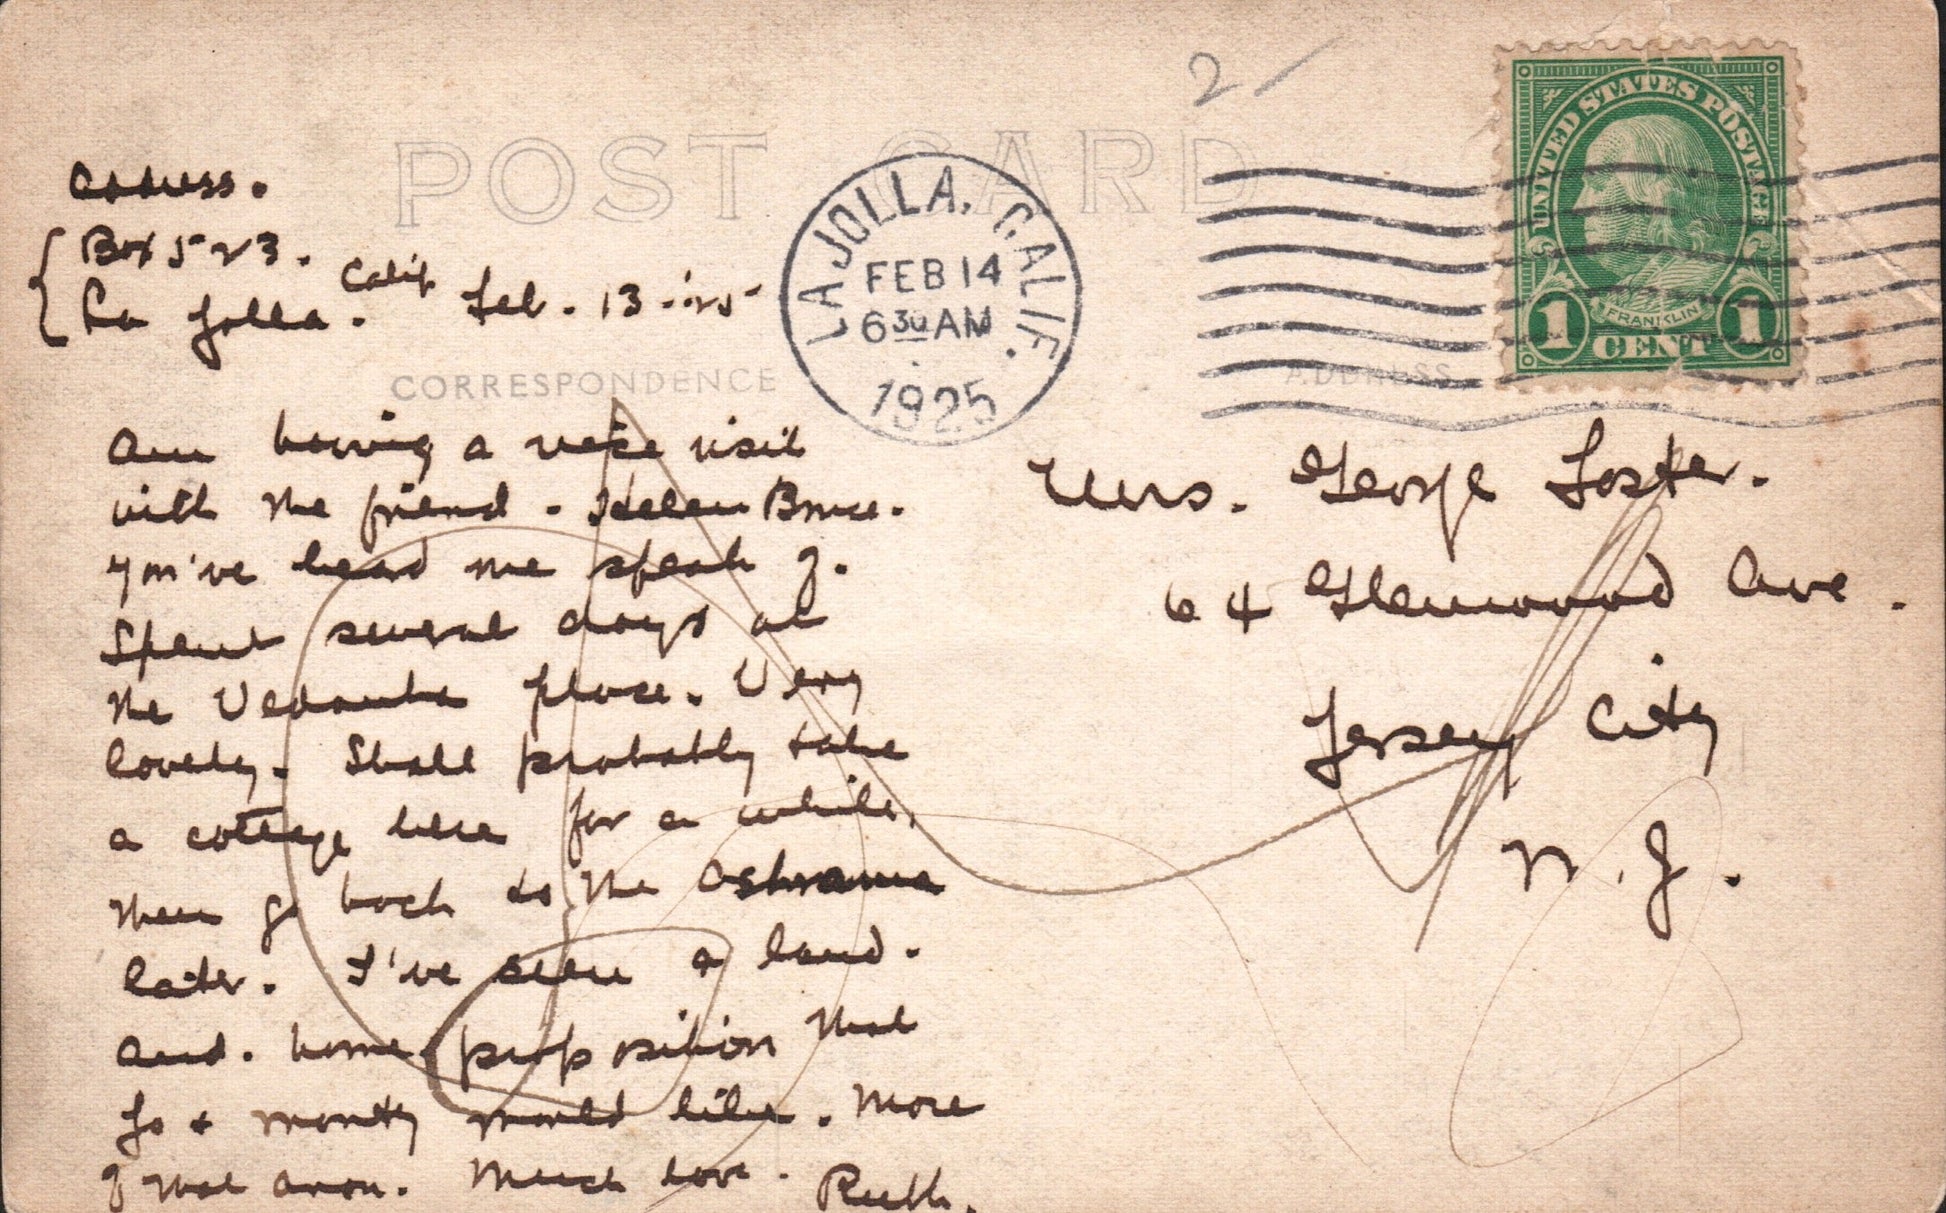 2 -
POST CARD
LA JOLLA, CALIF.
FEB 14
6 30 AM
1925
UNITED STATES POSTAGE
FRANKLIN
1 CENT 1
Address.
Box 523.
La Jolla. Calif. Feb. 13 - '25
CORRESPONDENCE
ADDRESS
Am having a nice visit
with the friend - Helen Bruce.
you've heard me speak of.
Spent several days at
the Vedanta place. Very
lovely. Shall probably take
a cottage here for a while,
then go back to the Ashrama
later. I've seen a land.
and. home proposition that
Jo + Monty would like. More
of that anon. Much love. Ruth.
Mrs. George Foster.
64 Glenwood Ave.
Jersey City
N. J.